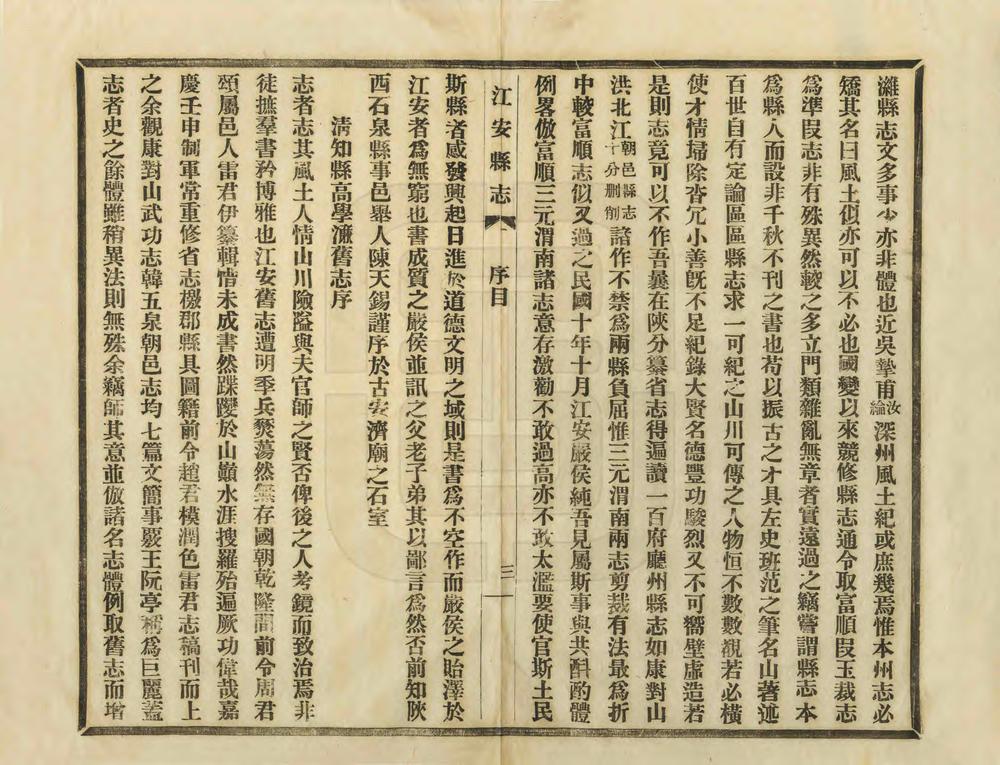 濰縣志文多事少亦非體也近吳摯甫汝綸深州風土紀或庶幾焉惟本州志必
矯其名曰風土似亦可以不必也國變以來競修縣志通令取富順段玉裁志
爲準段志非有殊異然較之多立門類雜亂無章者實遠過之竊嘗謂縣志本
爲縣人而設非千秋不刊之書也苟以振古之才具左史班范之筆名山著述
百世自有定論區區縣志求一可紀之山川可傳之人物恒不數數覯若必橫
使才情掃除沓冗小善旣不足紀錄大賢名德豐功駿烈又不可嚮壁虛造若
是則志竟可以不作吾曩在陝分纂省志得遍讀一百府廳州縣志如康對山
洪北江朝邑縣志十分刪削諸作不禁爲兩縣負屈惟三元渭南兩志剪裁有法最爲折
中較富順志似又過之民國十年十月江安嚴侯純吾見屬斯事與共斟酌體
例畧倣富順三元渭南諸志意存激勸不敢過高亦不敢太濫要使官斯土民
江安縣志 序目 三
斯縣者感發興起日進於道德文明之域則是書爲不空作而嚴侯之貽澤於
江安者爲無窮也書成質之嚴侯並訊之父老子弟其以鄙言爲然否前知陝
西石泉縣事邑舉人陳天錫謹序於古安濟廟之石室
清知縣高學濂舊志序
志者志其風土人情山川險隘與夫官師之賢否俾後之人考鏡而致治焉非
徒摭羣書矜博雅也江安舊志遭明季兵燹蕩然無存國朝乾隆間前令周君
頌屬邑人雷君伊纂輯惜未成書然踩躞於山巔水涯搜羅殆遍厥功偉哉嘉
慶壬申制軍常重修省志檄郡縣具圖籍前令趙君模潤色雷君志稿刊而上
之余觀康對山武功志韓五泉朝邑志均七篇文簡事覈王阮亭稱爲巨麗蓋
志者史之餘體雖稍異法則無殊余竊師其意並倣諸名志體例取舊志而增